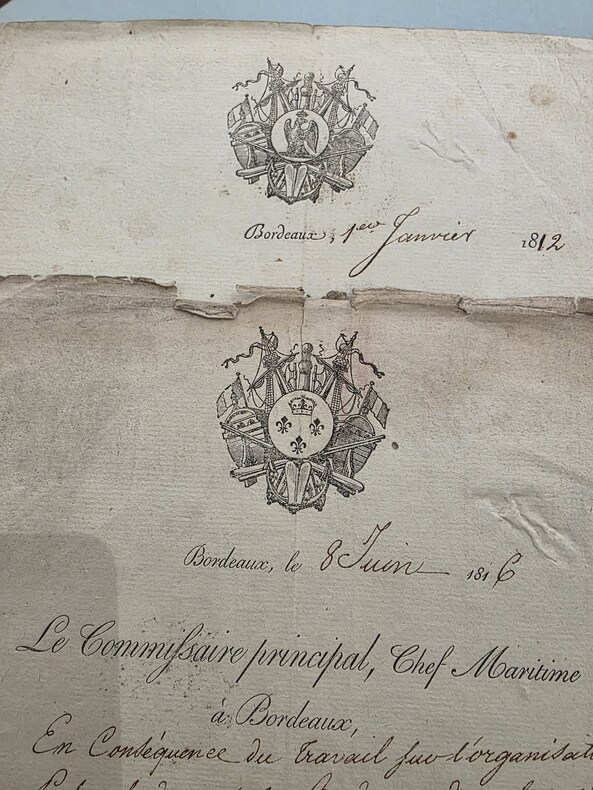 Bordeaux, 1er Janvier 1812
Bordeaux, le 8 Juin 1816
Le Commissaire principal, Chef Maritime
à Bordeaux,
En Conséquence du Travail sur l'organisati